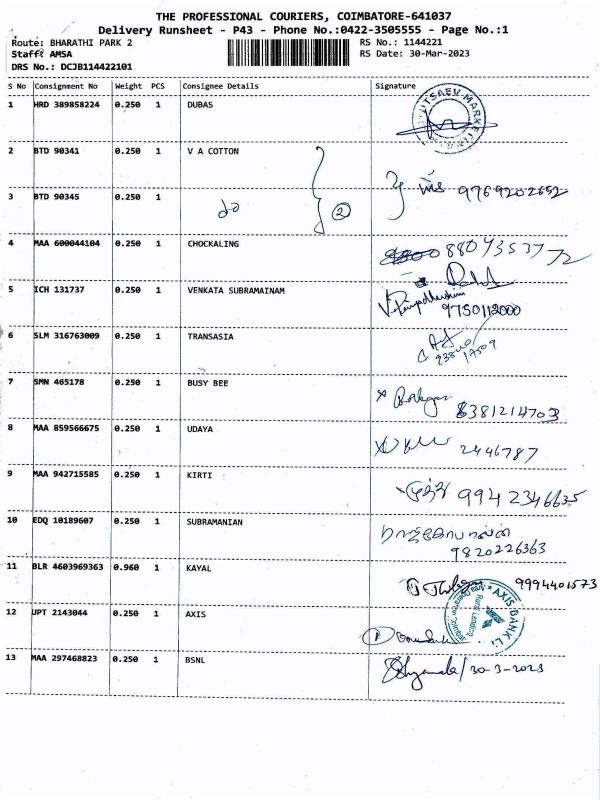 THE PROFESSIONAL COURIERS, COIMBATORE-641037
Delivery Runsheet - P43 - Phone No.:0422-3505555 - Page No.:1
Route: BHARATHI PARK 2 RS No.: 1144221
Staff: AMSA RS Date: 30-Mar-2023
DRS No.: DCJB114422101
S No Consignment No Weight PCS Consignee Details Signature
1 HRD 389858224 0.250 1 DUBAS
2 BTD 90341 0.250 1 V A COTTON
3 BTD 90345 0.250 1 do 2 9769202652
4 MAA 600044104 0.250 1 CHOCKALING 8807353772
5 ICH 131737 0.250 1 VENKATA SUBRAMAINAM
9750112000
6 SLM 316763009 0.250 1 TRANSASIA
7 SMN 465178 0.250 1 BUSY BEE
8381214703
8 MAA 859566675 0.250 1 UDAYA 2446787
9 MAA 942715585 0.250 1 KIRTI 9942346635
10 EDQ 10189607 0.250 1 SUBRAMANIAN
9820226363
11 BLR 4603969363 0.960 1 KAYAL 9994401573
12 JPT 2143044 0.250 1 AXIS AXIS BANK
13 MAA 297468823 0.250 1 BSNL Shyamala/30-3-2023